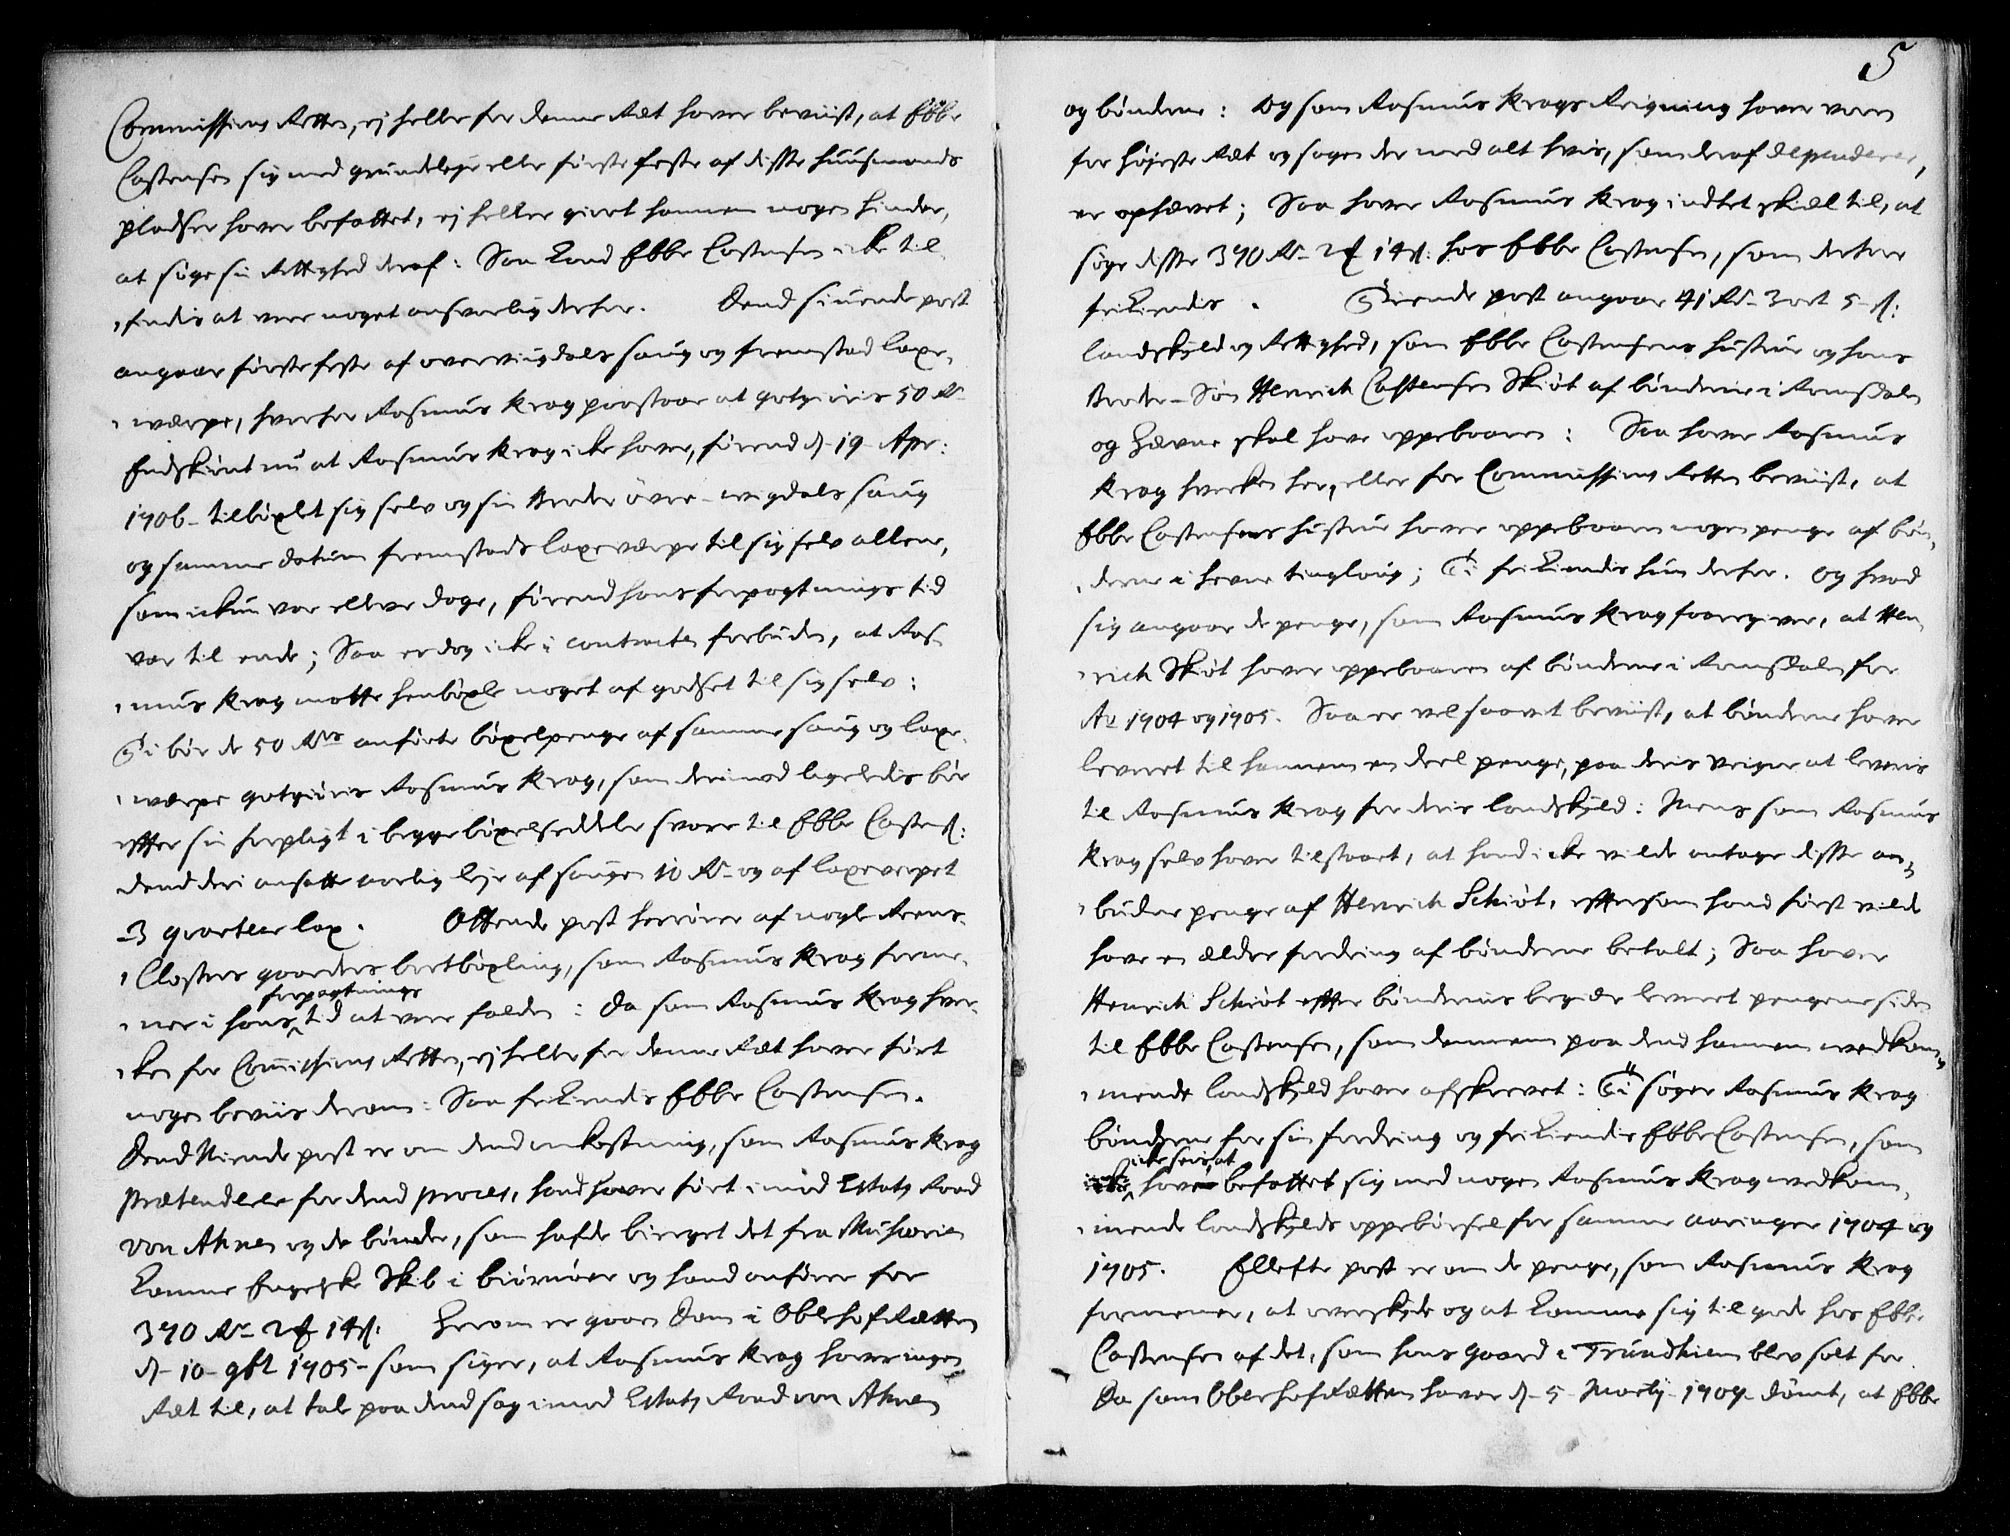 Commissions Retten, ej heller for denne Ræt hafver beviist, at Ebbe
Castensen sig med grundeleje eller første feste af disse huusmands
pladser hafver befattet, ej heller giort hannem nogen hinder,
at søge sin Rettighed deraf: Saa kand Ebbe Castensen icke til¬
findis at vere noget ansvarlig derfor. Dend siuende post
angaar første feste af overvigdals saug og fremstad laxe¬
værpe, hvorfor Rasmus Krag paastaar at gotgiøris 50 Rd
Endskiønt nu at Rasmus Krag icke hafver, førend d. 19 Apr:
1706 tilbøxlet sig selv og sin Broder øver-wigdals saug
og samme datum fremstads laxeværpe til sig selv allene,
som ickun var elleve dage, førend hans forpagtnings tid
var til ende; Saa er dog icke i contracten forbuden, at Ras¬
mus Krag motte henbøxle noget af godset til sig selv:
Ti bør de 50 Rdrs anførte bøxelpenge af samme saug og laxe¬
værpe gotgiøris Rasmus Krag, som derimod ligeledis bør
effter sin forpligt i begge bøxelseddeler svare til Ebbe Castens:
dend deri ansatte aarlig leje af saugen 10 Rd og af laxeverpet
3 qvarteer lax. Ottende post herrører af nogle Reens¬
Closters gaarders bortbøxling, som Rasmus Krag forme¬
ner i hans forpagtnings tid at vere falden: Da som Rasmus Krag hver¬
ken for Commissions Retten, ej heller for denne Ræt hafver ført
nogen beviis derom: Saa frikiendis Ebbe Castensen.
Dend Niende post er om dend omkostning, som Rasmus Krag
prætenderer for dend proces, hand hafver ført imod Etats Raad
von Ahnen og de bønder, som hafde bierget det fra
komne Engelske Skib i biørnøer og hand anfører for
370 Rd 2 ℔ 14 s: Herom er gaaen Dom i Oberhofretten
d. 10 9br 1705 som siger, at Rasmus Krag hafver ingen
Ræt til, at tale paa dend sag imod Etats Raad von Ahnen
5
og bønderne: Og som Rasmus Krags Reigning hafver veren
for højeste Ræt og sagen der med alt hvis, som deraf dependerer,
er ophævet; Saa hafver Rasmus Krag indtet skæl til, at
søge disse 370 Rd 2 ℔ 14 s: hos Ebbe Castensen, som derfore
frikiendis. Tiende post angaar 41 Rd 3 ort 5 s:
landskyld og Rettighed, som Ebbe Castensens hustrue og hans
Broder-Søn Henrich Castensen Skiøt af bønderne i Romsdalen
og Hævne skal have oppebaaren: Saa hafver Rasmus
Krag hverken her, eller for Commissions Retten beviist, at
Ebbe Castensens hustrue hafver oppebaaren nogen penge af bøn¬
derne i hevne tinglaug; Ti frikiendis hun derfor. Og hvad
sig angaar de penge, som Rasmus Krag foregiver, at Hen¬
rich Skiøt hafver oppebaaren af bønderne i Romsdalen for
Ao 1704 og 1705. Saa er vel saavit beviist, at bønderne hafver
leveret til hannem en deel penge, paa deris veigne at leveris
til Rasmus Krag for deris landskyld: Mens som Rasmus
Krag selv hafver tilstaaet, at hand icke vilde antage disse an¬
budne penge af Henrich Schiøt, efftersom hand først vilde
have en ælder fordring af bønderne betalt; Saa hafver
Henrich Schiøt effter bøndernis begiær leveret pengene siden
til Ebbe Castensen, som dennem paa dend hannem vedkom¬
mende landskyld hafver afskrevet: Ti søger Rasmus Krag
bønderne for sin fordring og frikiendis Ebbe Castensen, som
icke have befattet sig med nogen Rasmus Krag vedkom¬
mende landskylds oppebørsel for samme aaringer 1704 og
1705. Ellefte post er om de penge, som Rasmus Krag
formener, at overskyde og at komme sig til gode hos Ebbe
Castensen af det, som hans gaard i Trundhiem blev solt for
Da som Oberhofretten hafver d. 5 Martij 1707 dømt, at Ebbe